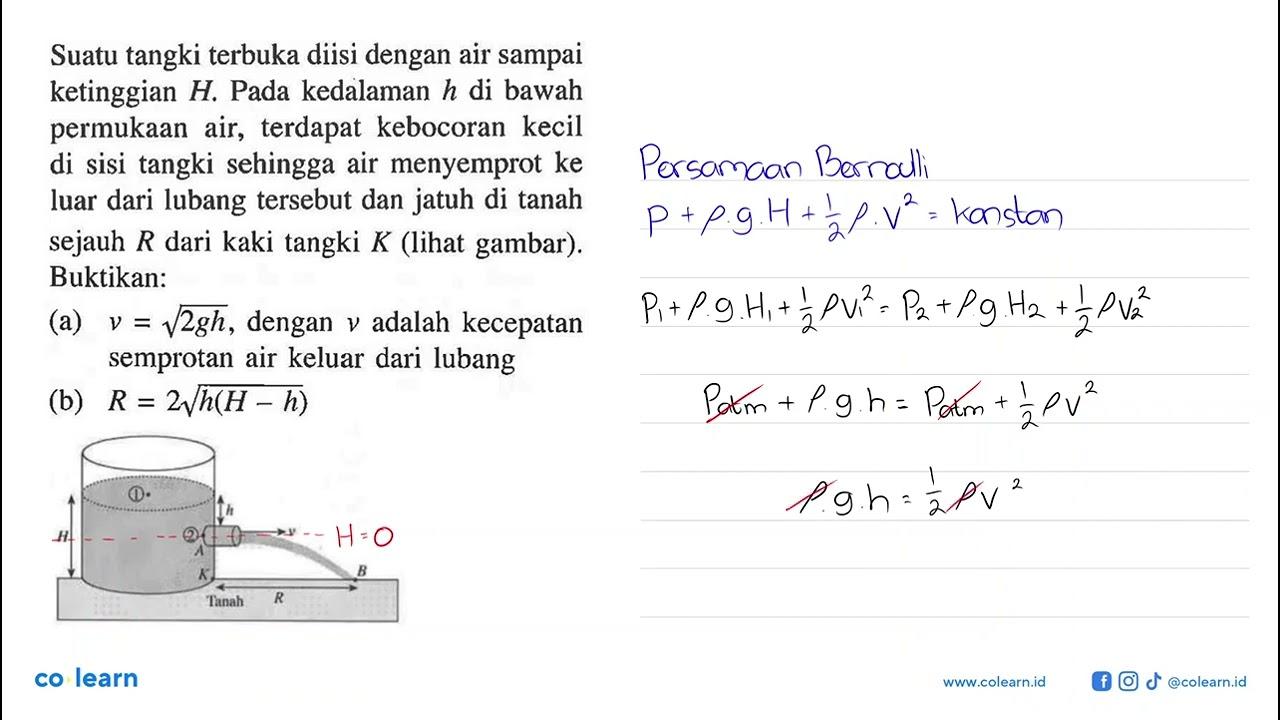 Suatu tangki terbuka diisi dengan air sampai
ketinggian H. Pada kedalaman h di bawah
permukaan air, terdapat kebocoran kecil
di sisi tangki sehingga air menyemprot ke
luar dari lubang tersebut dan jatuh di tanah
sejauh R dari kaki tangki K (lihat gambar).
Buktikan:
(a) v = √2gh, dengan v adalah kecepatan
semprotan air keluar dari lubang
(b) R = 2√h(H – h)
①
h
H
②
v
H=0
A
K
B
Tanah R
Persamaan Bernoulli
P + ρ.g.H + 1/2 ρ.V² = konstan
P₁ + ρ.g.H₁ + 1/2 ρV₁² = P₂ + ρgH₂ + 1/2 ρV₂²
Patm + ρ.g.h = Patm + 1/2 ρV²
ρ.g.h = 1/2 ρV²
co learn
www.colearn.id @colearn.id